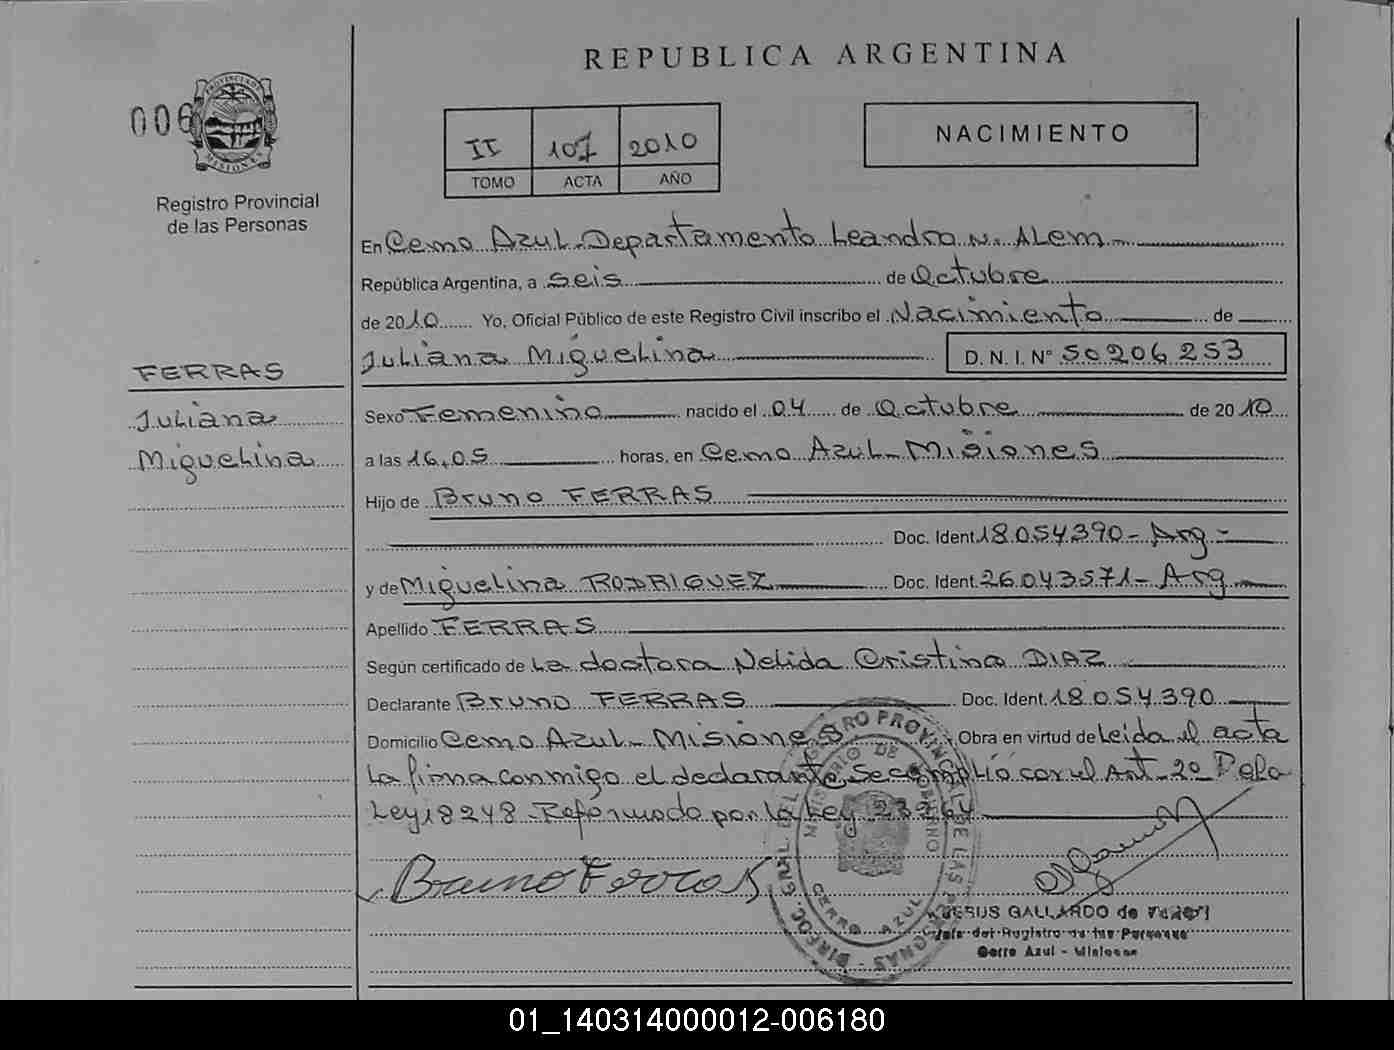 REPUBLICA ARGENTINA
006
PROVINCIA DE
MISIONES
Registro Provincial
de las Personas
II 107 2010
TOMO ACTA AÑO
NACIMIENTO
En Cerro Azul - Departamento Leandro N. Alem
República Argentina, a seis de Octubre
de 2010 Yo, Oficial Público de este Registro Civil inscribo el Nacimiento de
Juliana Miguelina D. N. I. N° 50206253
FERRAS
Juliana
Miguelina
Sexo Femenino nacido el 04 de Octubre de 2010
a las 16,05 horas, en Cerro Azul - Misiones
Hijo de Bruno FERRAS
Doc. Ident. 18.054.390 - Arg -
y de Miguelina RODRIGUEZ Doc. Ident. 26.043.571 - Arg
Apellido FERRAS
Según certificado de La doctora Nelida Cristina DIAZ
Declarante Bruno FERRAS Doc. Ident. 18.054.390
Domicilio Cerro Azul - Misiones Obra en virtud de Leida el acta
la firma conmigo el declarante, Se cumplió con el Art - 2° De la
Ley 18248 - Reformado por la Ley 23264
Bruno Ferras
CERRO AZUL
JESUS GALLARDO de
Jefe del Registro de las Personas
Cerro Azul - Misiones
01_140314000012-006180